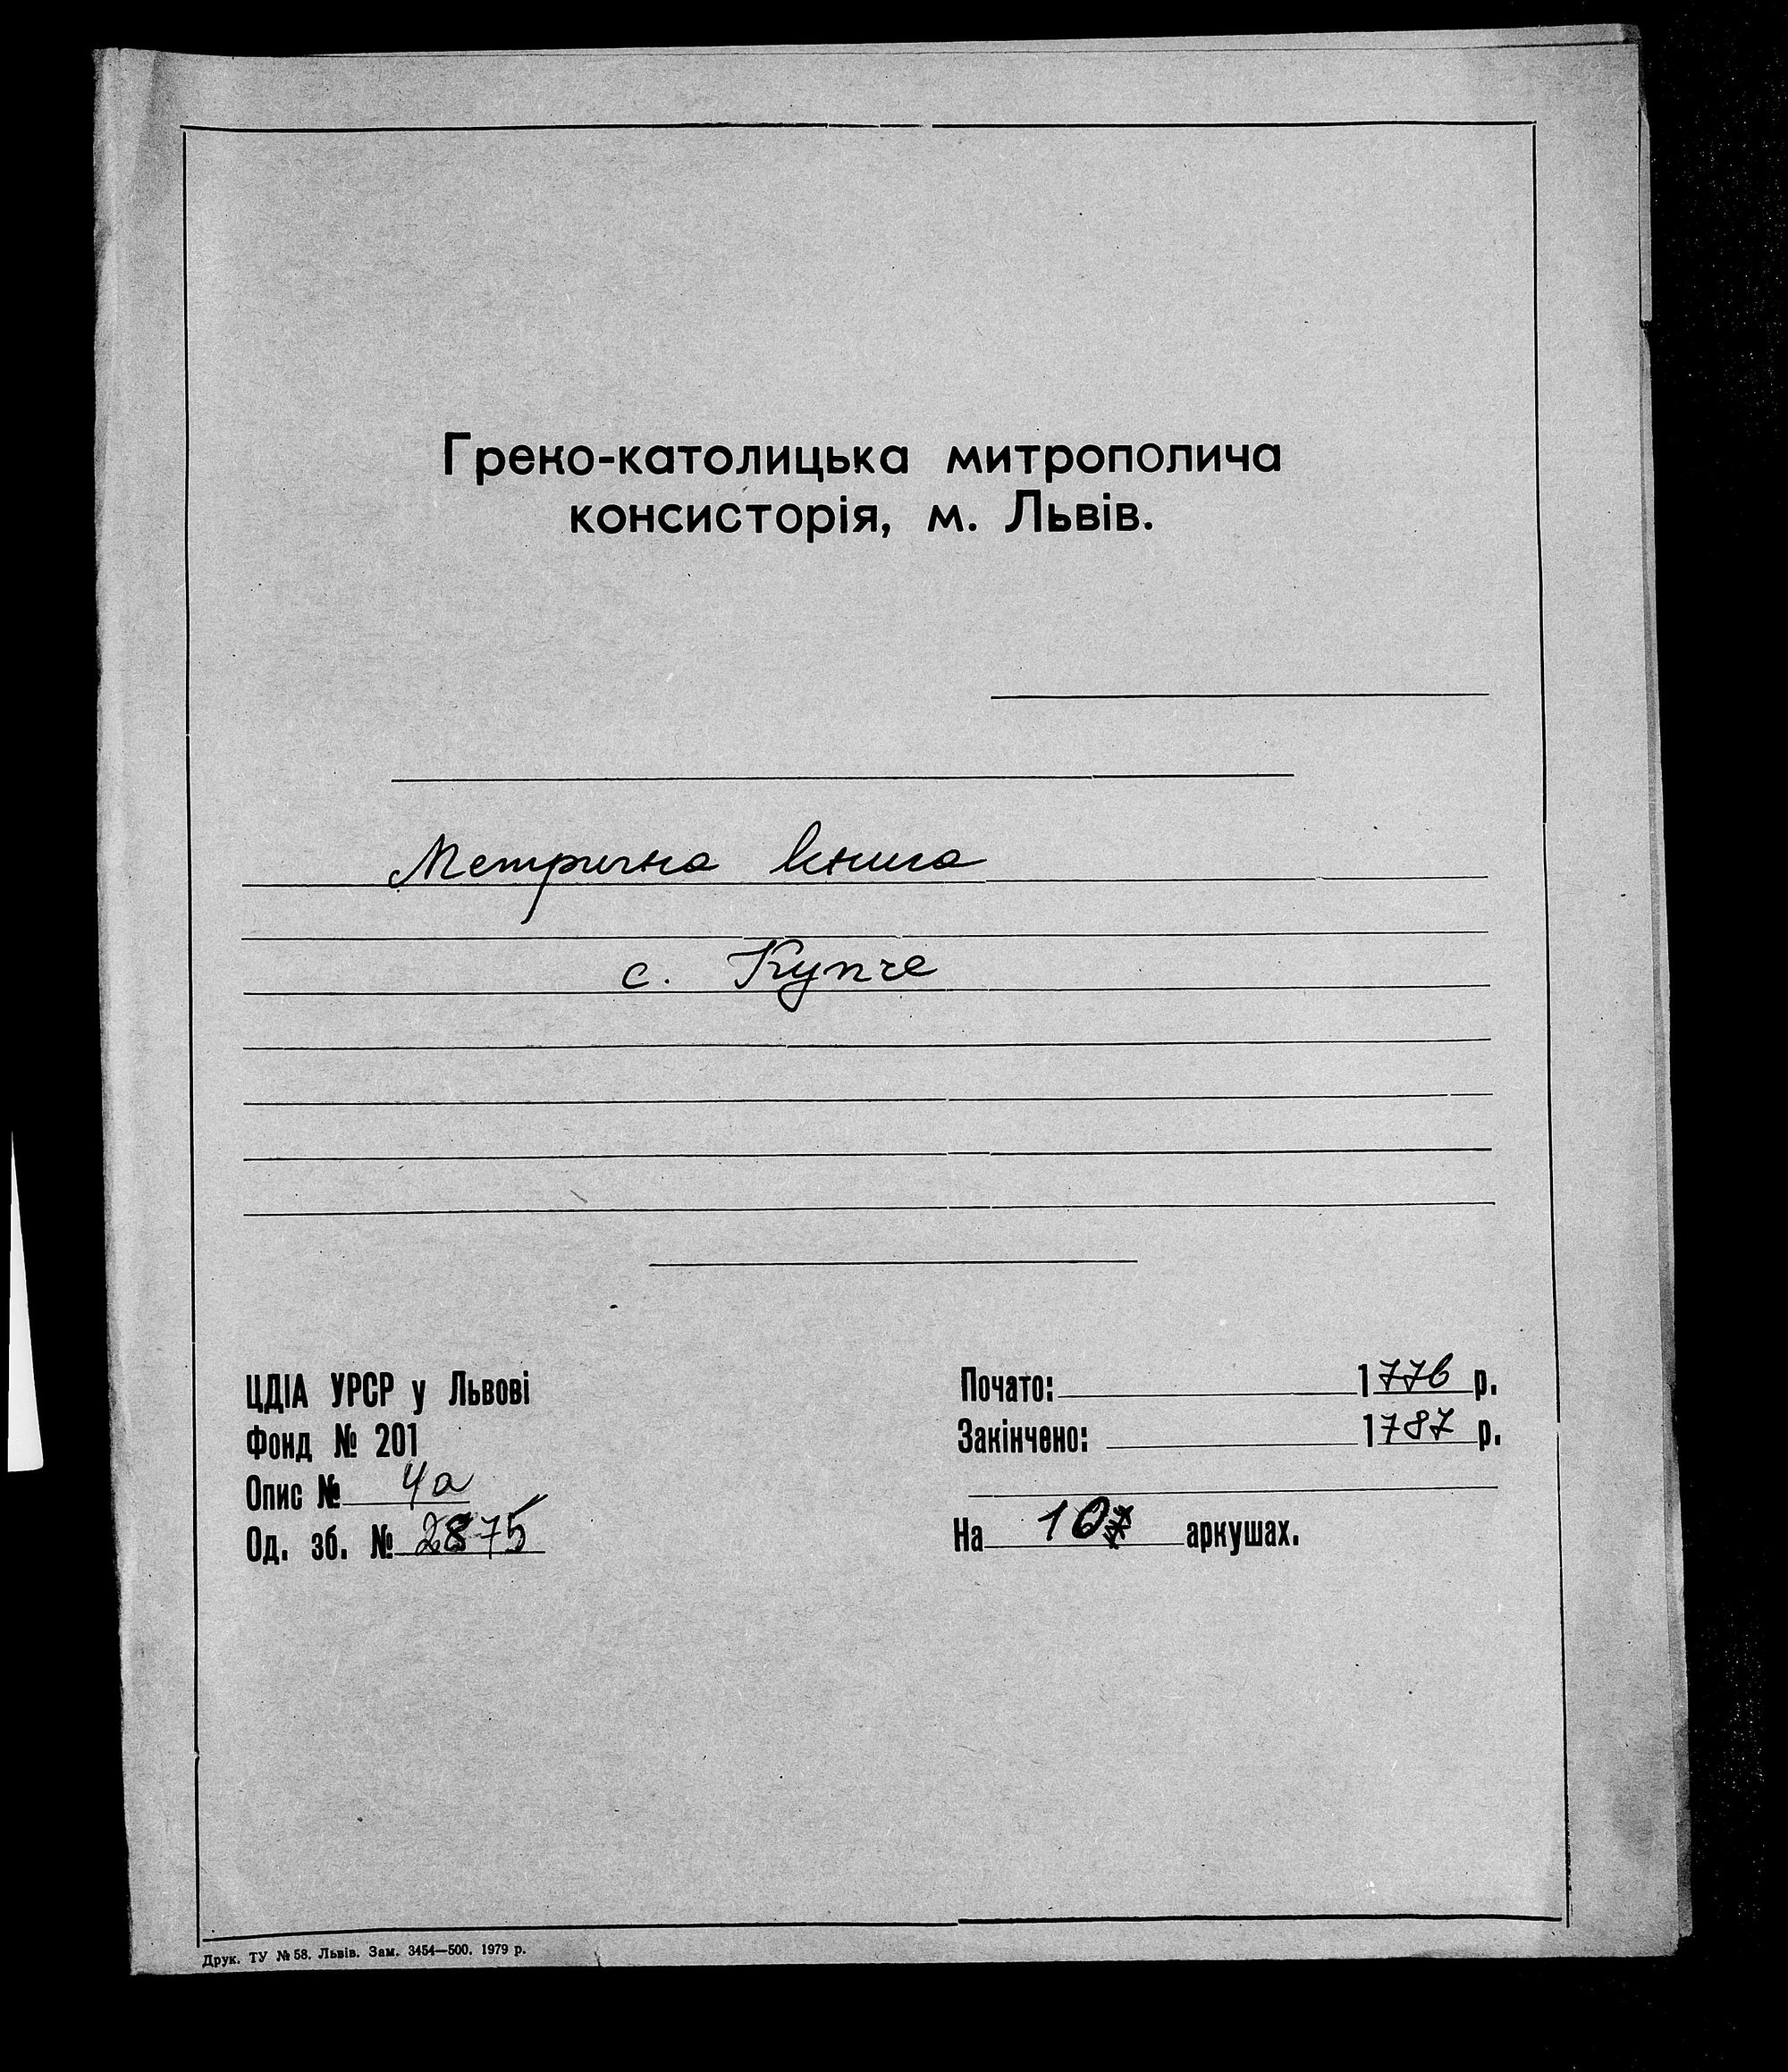 Греко-католицька митрополича
консисторія, м. Львів.
Метрична книга
с. Купче
ЦДІА УРСР у Львові
Фонд № 201
Опис № 4а
Од. зб. № 2875
Почато: 1776 р.
Закінчено: 1787 р.
На 107 аркушах.
Друк. ТУ № 58. Львів. Зам. 3454—500. 1979 р.